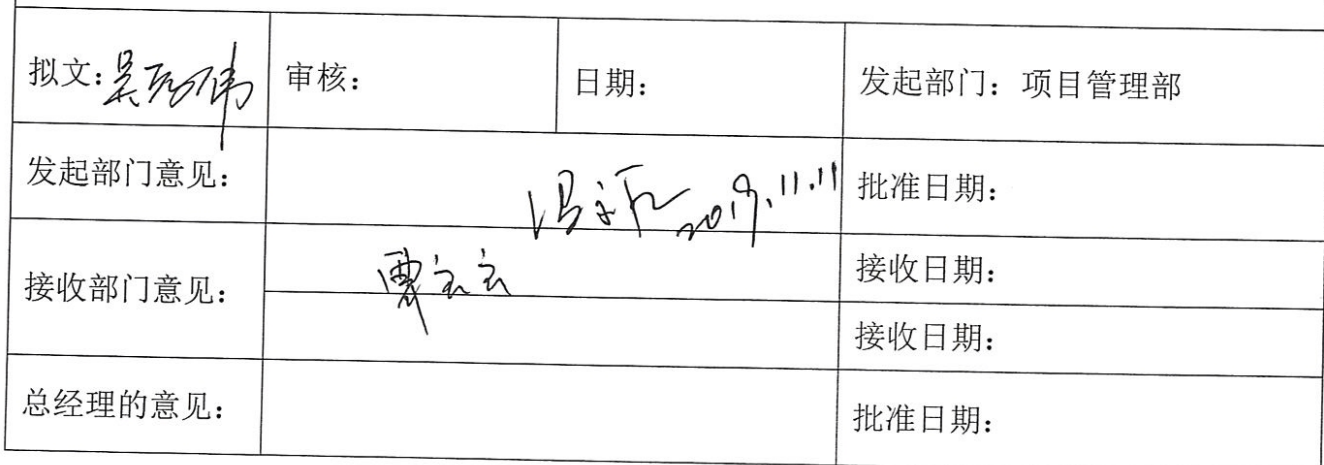 拟文: 审核: 日期: 发起部门: 项目管理部
发起部门意见: 2019.11.11 批准日期:
接收部门意见: 覃 接收日期:
接收日期:
总经理的意见: 批准日期: